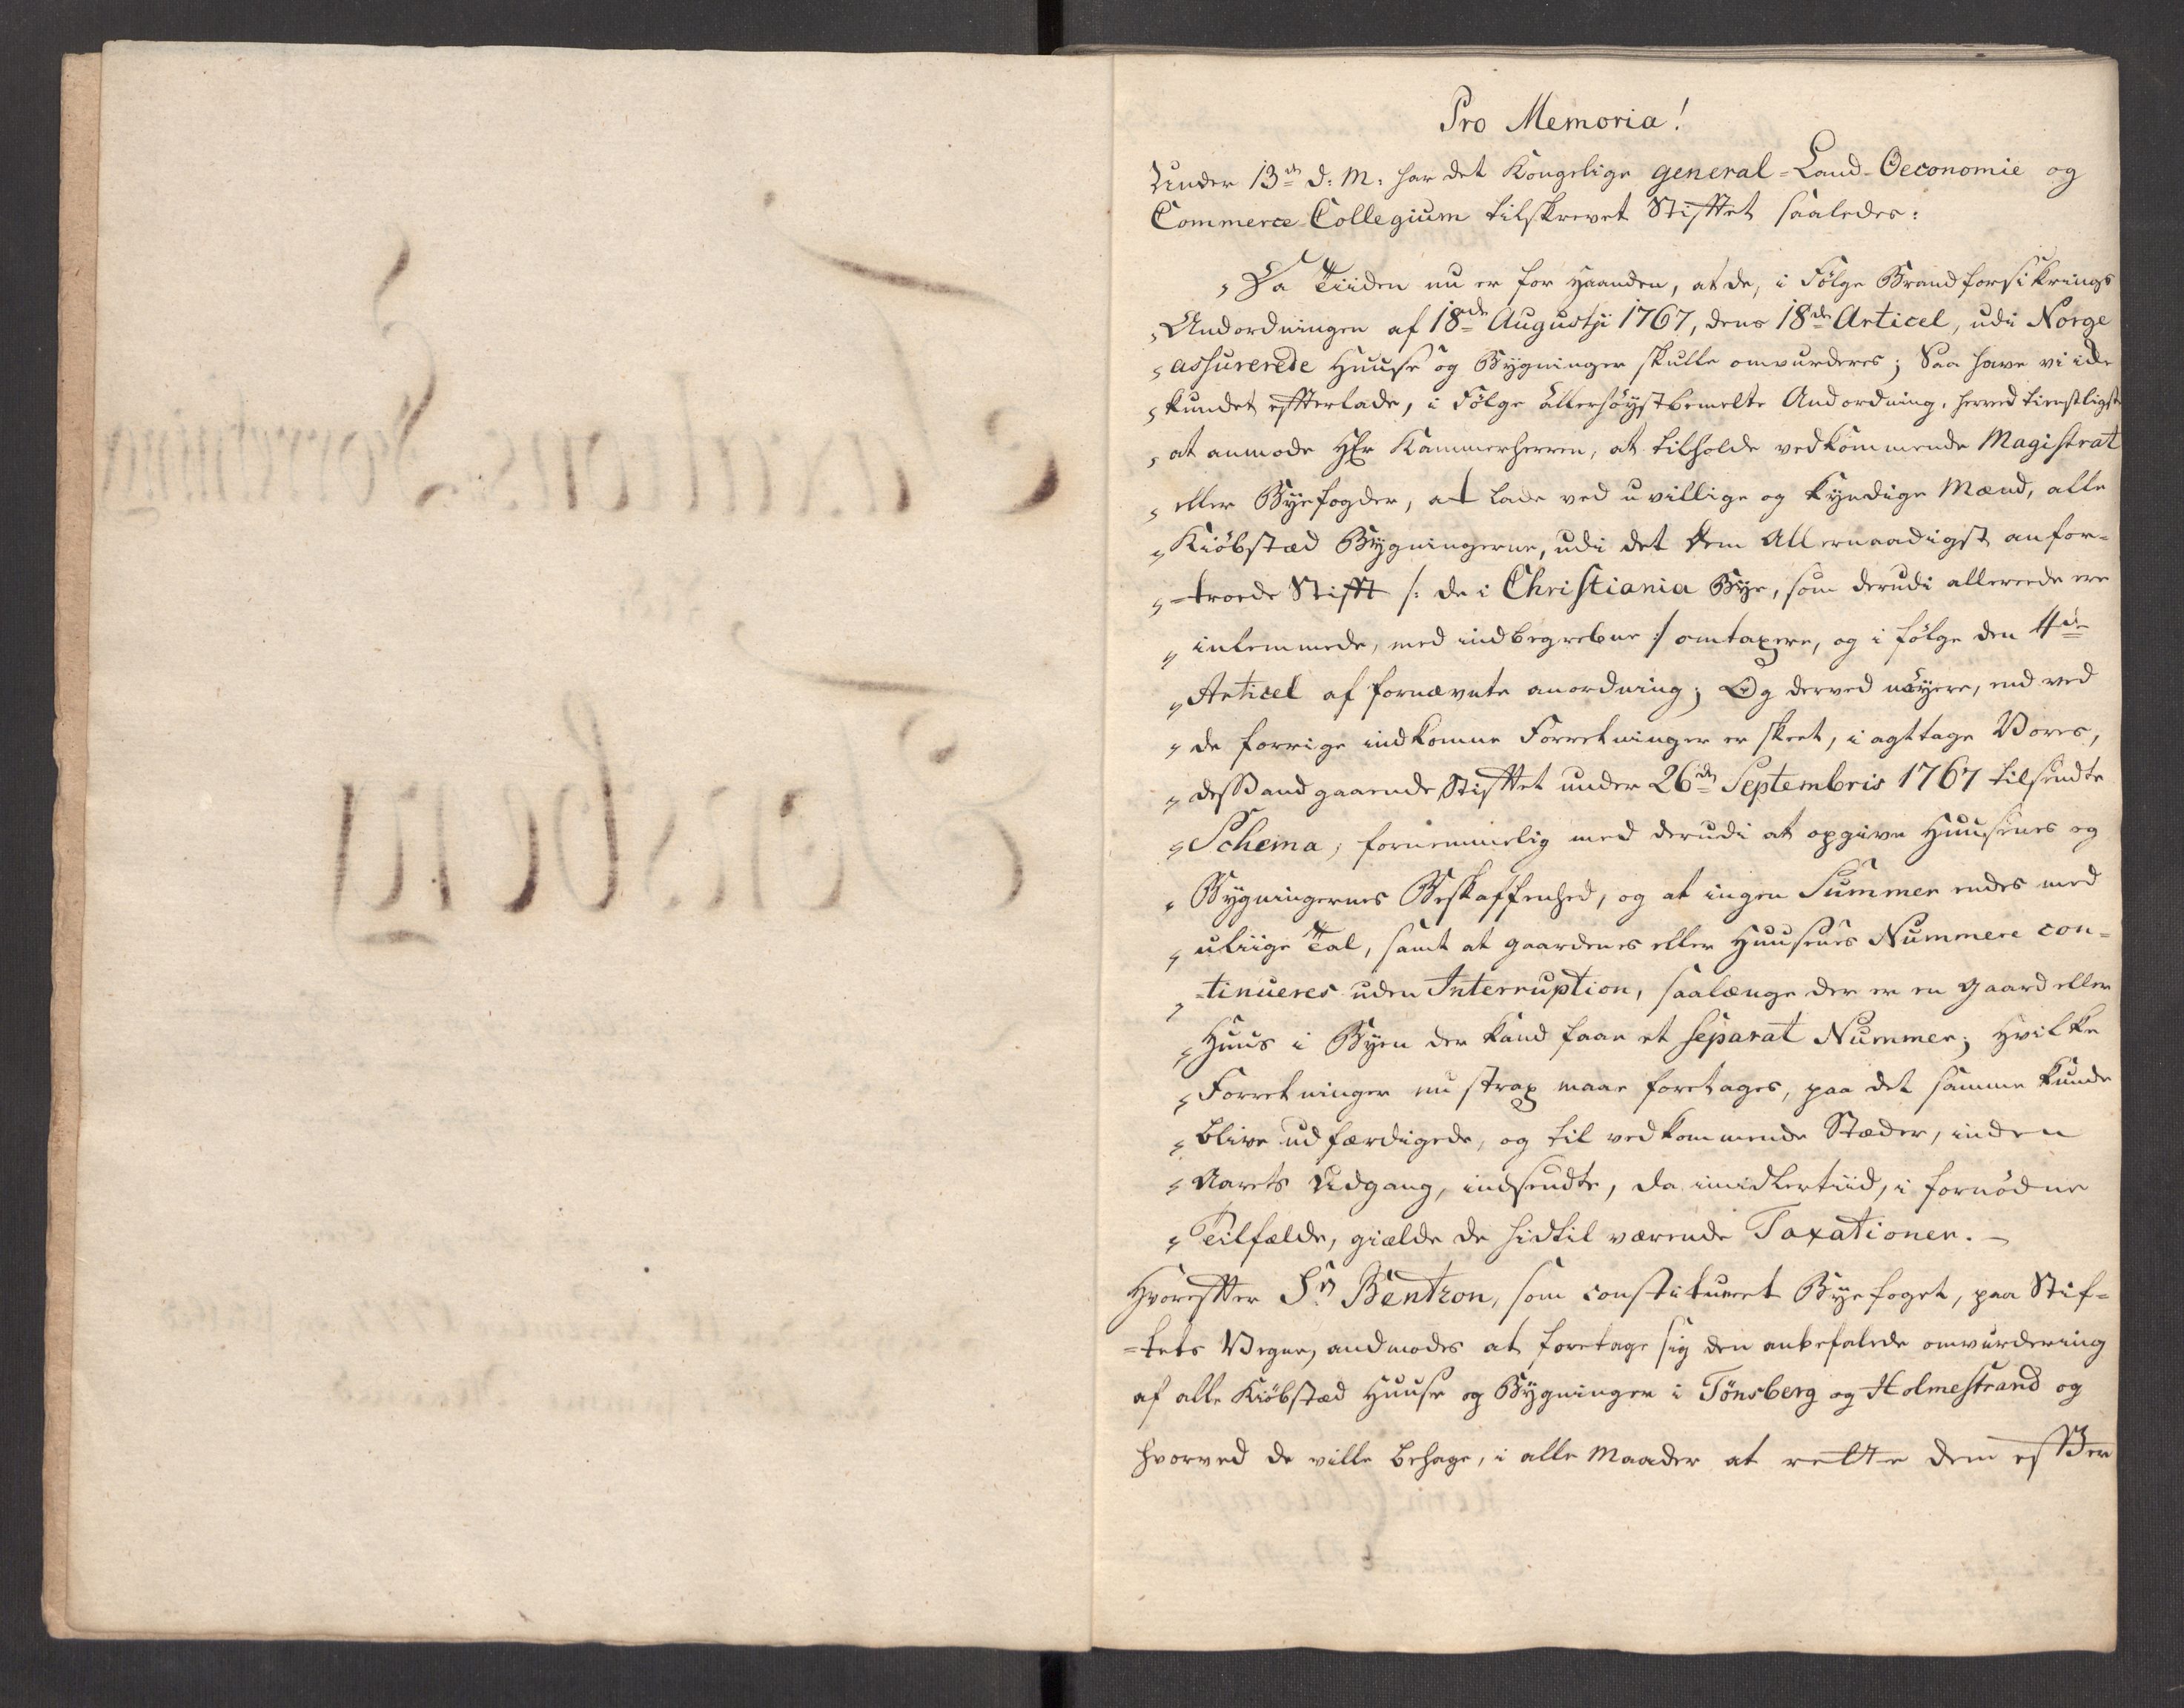 Pro Memoria!
Under 13de d: M: har det Kongelige general-Land-Oeconomie og
Commerce Collegium tilskrevet Stifftet saaledes:
„Da Tiiden nu er for Haanden, at de, i Følge Brandforsikrings
„Andordningen af 18de Augustji 1767, dens 18de Articel, udi Norge
„assurerede Huuse og Bygninger skulle omvurderes; Saa have vi icke
„kundet effterlade, i Følge Allerhøystbemelte Andordning, herved tienstligst
„at anmode Hr Kammerherren, at tilholde vedkommende Magistrat
„eller Byefogder, at lade ved uvillige og kyndige Mænd, alle
„Kiøbstæd Bygningerne, udi det dem Allernaadigst anfor-
„-troede Stifft /: de i Christiania Bye, som derudi allereede ere
„inlemmede, med indbegrebne :/ omtaxere, og i følge den 4de
„Articel af fornævnte anordning; Og derved nøyere, end ved
„de forrige indkomne Forretninger er skeet, i agttage Vores,
„dessandgaaende Stifftet under 26de Septembris 1767 tilsendte
„Schema, fornemmelig med derudi at opgive Huusenes og
„Bygningernes Beskaffenhed, og at ingen Summer endes med
„uliige Tal, samt at gaardenes eller Huusenes Nummere con-
„-tinueres uden Interruption, saalænge der er en gaard eller
„Huus i Byen der kand faae et separat Nummer; Hvilke
„Forretninger nu strax maae foretages, paa det samme kunde
„blive udfærdigede, og til vedkommende Stæder, inden
„Aarets Udgang, indsendte, da imidlertiid, i fornødne
„Tilfælde, giælde de hidtil værende Taxationer. –
Hvoreffter Sr Bentzon, som constitueret Byefoget, paa Stif-
-tets Vegne, andmodes at foretage sig den anbefalede omvurdering
af alle Kiøbstæd Huuse og Bygninger i Tønsberg og Holmestrand og
hvorved de ville behage, i alle Maader at rette dem effter